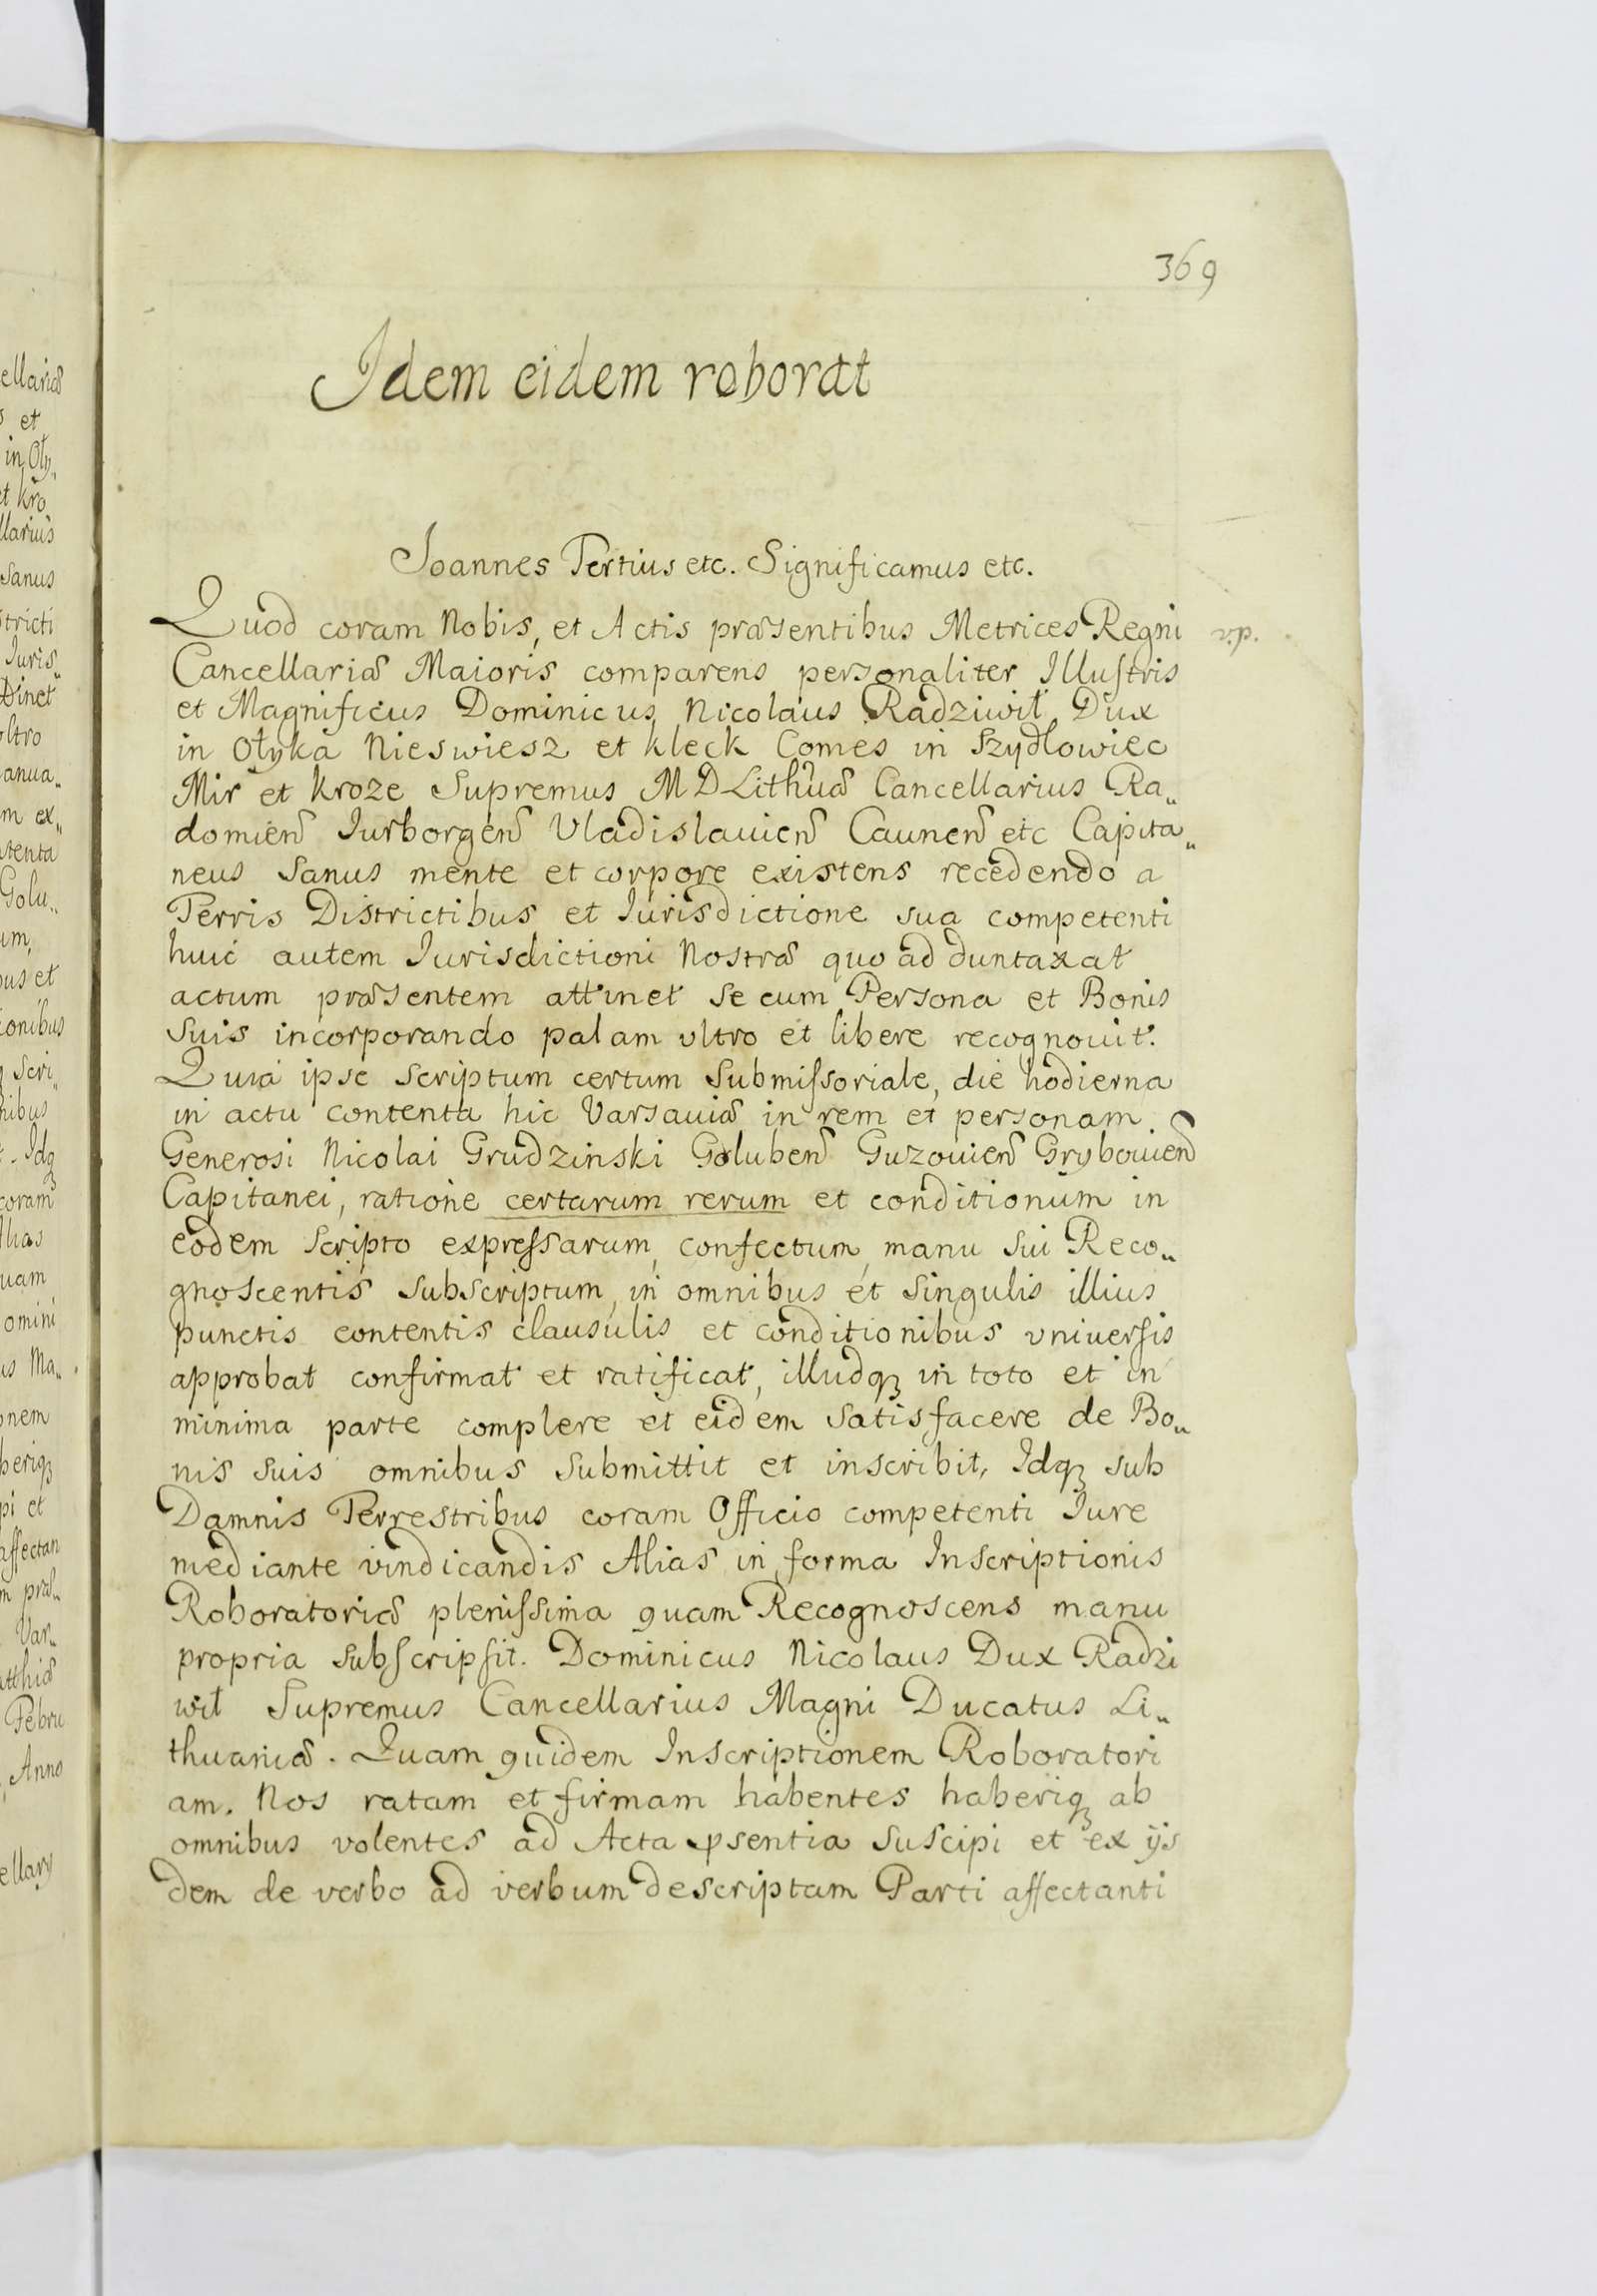 369
Idem eidem roborat
Joannes Tertius etc. Significamus etc.
Quod coram Nobis, et Actis præsentibus Metrices Regni v.p.
Cancellariæ Maioris comparens personaliter Illustris
et Magnificus Dominicus Nicolaus Radziwił Dux
in Ołyka Nieswiesz et kleck Comes in Szydłowiec
Mir et kroze Supremus M D Lithuæ Cancellarius Ra„
domien Iurborgen Vladislauien Caunen etc Capita„
neus Sanus mente et corpore existens recedendo a
Terris Districtibus et Iurisdictione sua competenti
huic autem Iurisdictioni Nostræ quo ad duntaxat
actum præsentem attinet se cum Persona et Bonis
Suis incorporando palam vltro et libere recognouit.
Quia ipse Scriptum certum Submissoriale, die hodierna
in actu contenta hic Varsauiæ in rem et personam
Generosi Nicolai Grudzinski Goluben Guzouien Grybouien
Capitanei, ratione certarum rerum et conditionum in
eodem Scripto expressarum, confectum, manu Sui Reco„
gnoscentis Subscriptum, in omnibus et Singulis illius
punctis contentis clausulis et conditionibus vniuersis
approbat confirmat et ratificat, illudqꝫ in toto et in
minima parte complere et eidem Satisfacere de Bo„
nis Suis omnibus Submittit et inscribit, Idqꝫ sub
Damnis Terrestribus coram Officio competenti Iure
mediante vindicandis Alias in forma Inscriptionis
Roboratoriæ plenissima quam Recognoscens manu
propria Subscripsit. Dominicus Nicolaus Dux Radzi
wił Supremus Cancellarius Magni Ducatus Li„
thuaniæ. Quam quidem Inscriptionem Roboratori
am. Nos ratam et firmam habentes haberiqꝫ ab
omnibus volentes ad Acta ꝓsentia Suscipi et ex ijs
dem de verbo ad verbum descriptam Parti affectanti